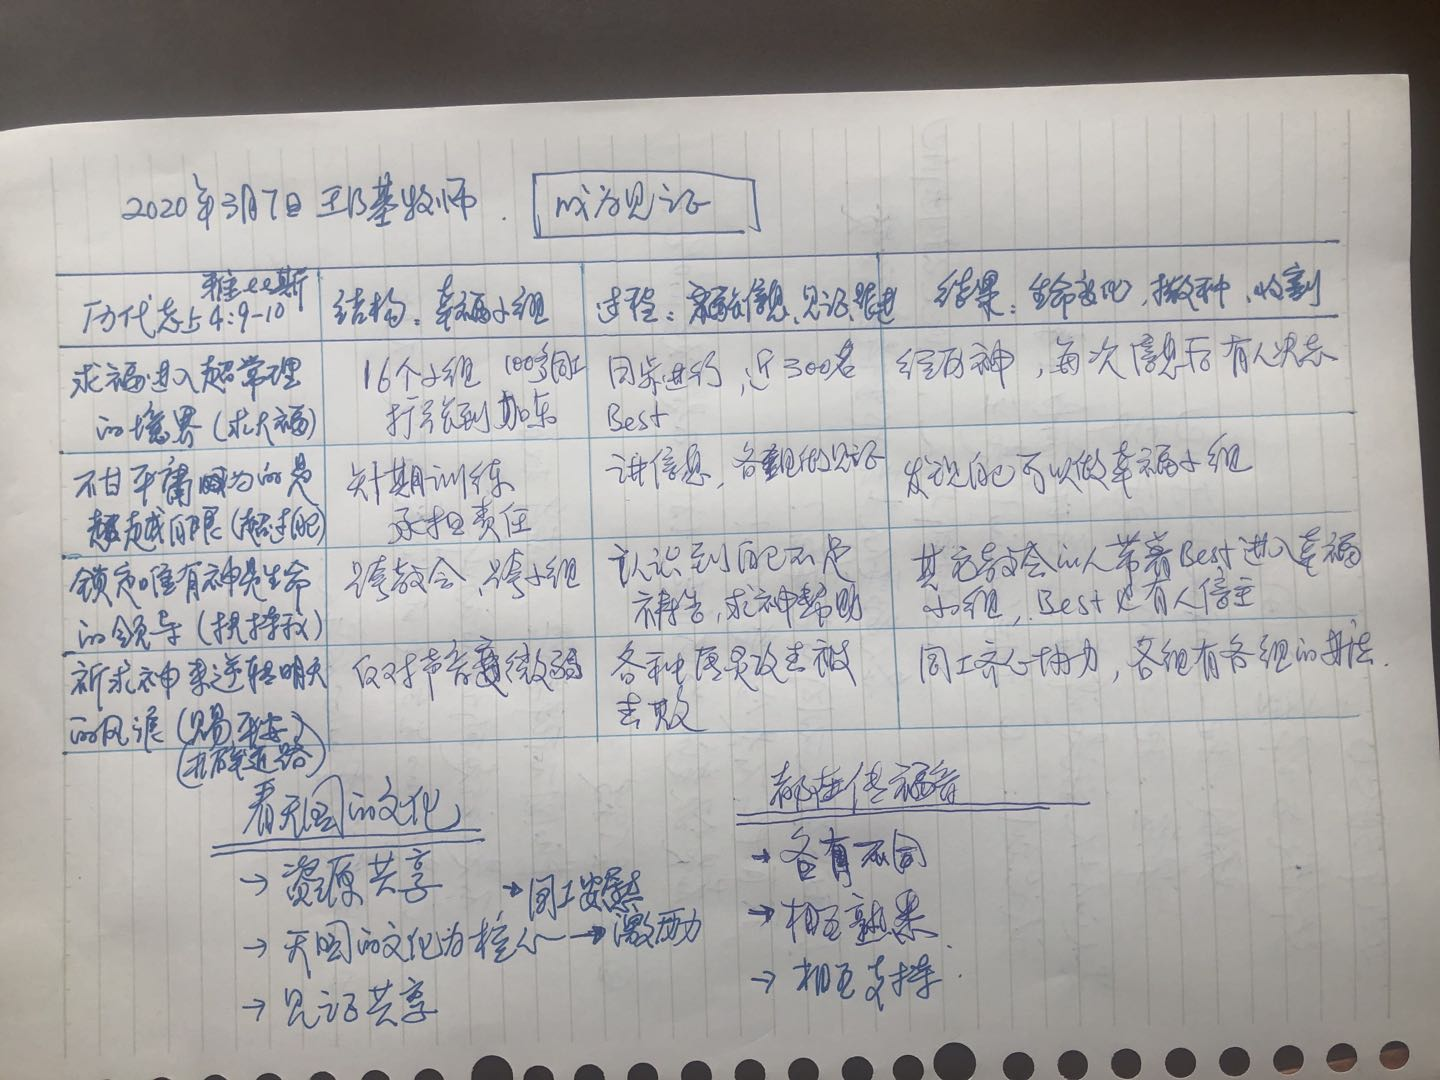 2020年3月7日 王乃基牧师. 成为见证
雅比斯
历代志上4:9-10
结构: 幸福小组
过程: 福音信息、见证、跟进
结果: 生命变化, 撒种、收割
求福进入超常理
的境界 (求大福)
16个小组 100多同工
扩张到加东
同步进行, 近300名
Best
经历神, 每次信息后有人决志
不甘平庸 为的是
超越有限 (超过自己)
短期训练
承担责任
讲信息, 各组做见证
发现自己可以做幸福小组
锁定唯有神是生命
的领导 (扶持我)
跨教会、跨小组
认识到自己不足
祷告, 求神帮助
其它教会的人带着Best进入幸福
小组, Best也有人信主
祈求神来逆转明天
的风浪 (赐平安)
反对声音变微弱
各种魔鬼攻击被
击败
同工齐心协力, 各组有各组的办法.
看天国的文化
→ 资源共享
→ 天国的文化为核心 → 激励
→ 同工安慰
→ 见证共享
都在传福音
→ 各有不同
→ 相互熟悉
→ 相互支持.